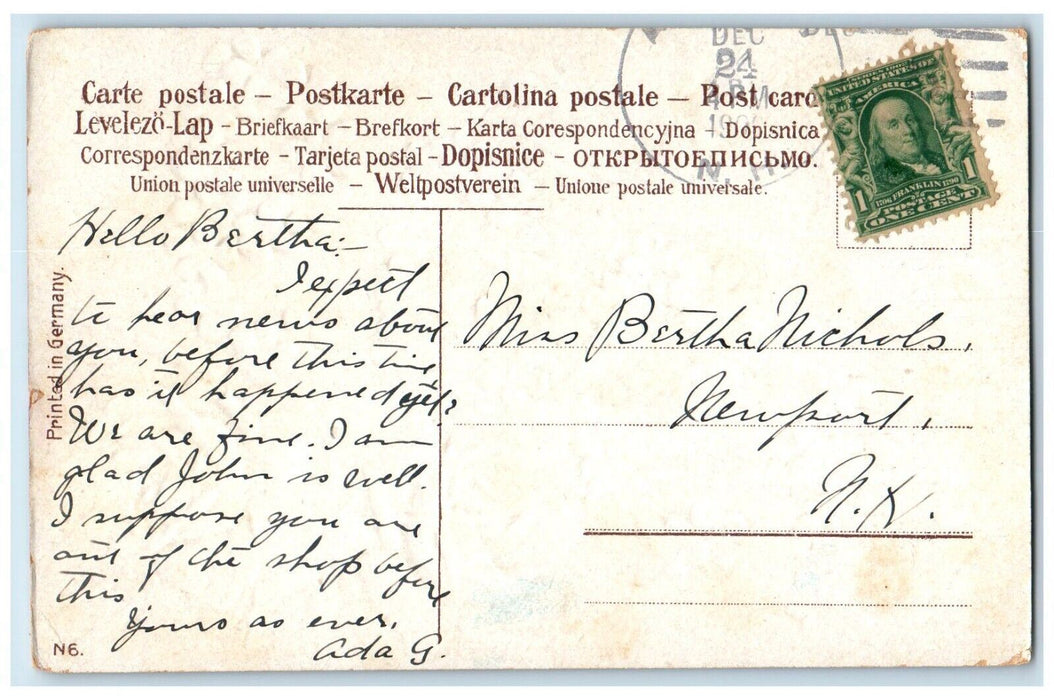 DEC
24
N. H.
Carte postale – Postkarte – Cartolina postale – Post card
Levelező-Lap – Briefkaart – Brefkort – Karta Corespondencyjna – Dopisnica
Correspondenzkarte – Tarjeta postal – Dopisnice – ОТКРЫТОЕПИСЬМО.
Union postale universelle – Weltpostverein – Unione postale universale.
UNITED STATES OF
AMERICA
1706 FRANKLIN 1790
1 POSTAGE 1
ONE CENT
Printed in Germany.
Hello Bertha:–
I expect
to hear news about
you, before this time
has it happened yet?
We are fine. I am
glad John is well.
I suppose you are
out of the shop before
this
Yours as ever,
Ada G.
Miss Bertha Nichols,
Newport,
N.H.
N6.